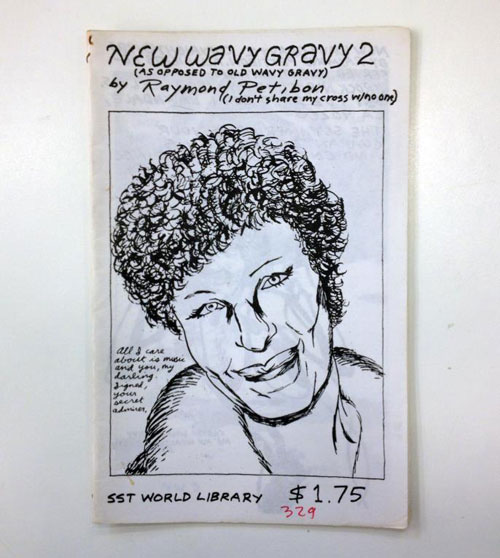 NEW WAVY GRAVY 2
(AS OPPOSED TO OLD WAVY GRAVY)
by Raymond Petibon
(I don't share my cross w/no one)
All I care
about is music
and you, my
darling.
Signed,
your
secret
admirer,
SST WORLD LIBRARY $1.75
329